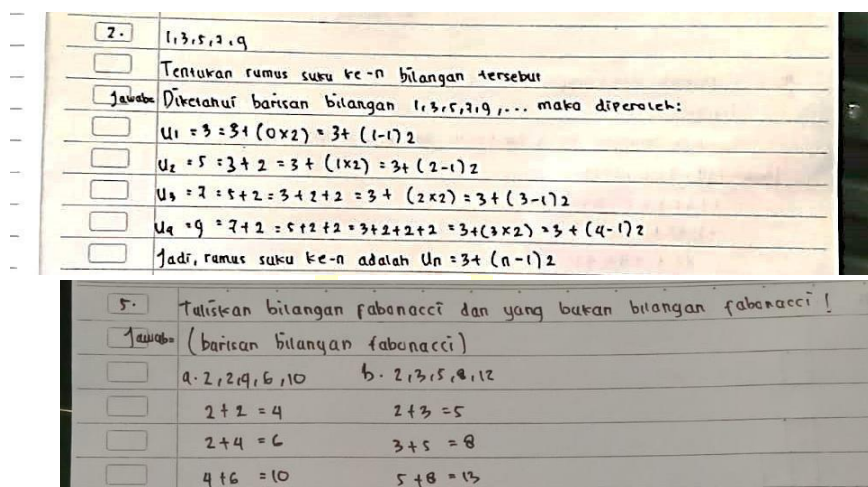 2. 1,3,5,7,9
Tentukan rumus suku ke-n bilangan tersebut
Jawab= Diketahui barisan bilangan 1,3,5,7,9,... maka diperoleh:
U1 = 3 = 3+ (0x2) = 3+ (1-1)2
U2 = 5 = 3+2 = 3+ (1x2) = 3+ (2-1)2
U3 = 7 = 5+2 = 3+2+2 = 3+ (2x2) = 3+ (3-1)2
U4 = 9 = 7+2 = 5+2+2 = 3+2+2+2 = 3+(3x2) = 3 + (4-1)2
Jadi, rumus suku ke-n adalah Un = 3+ (n-1)2
5. Tuliskan bilangan fabonacci dan yang bukan bilangan fabonacci !
Jawab= (barisan bilangan fabonacci)
a. 2,2,4,6,10 b. 2,3,5,8,12
2+2 = 4 2+3 = 5
2+4 = 6 3+5 = 8
4+6 = 10 5+8 = 13